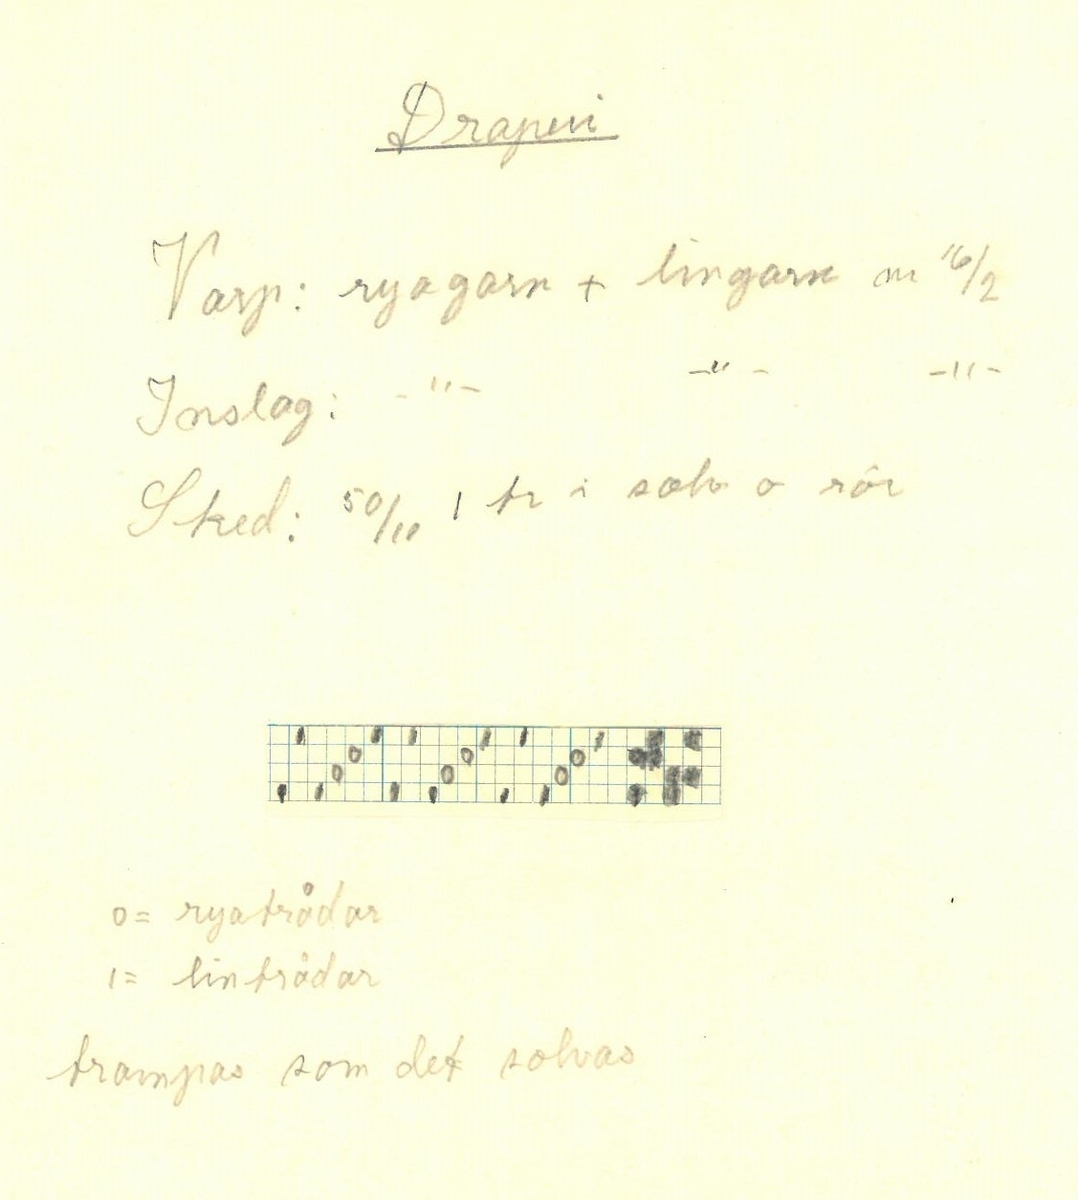 Draperi
Varp: ryagarn + lingarn nr 16/2
Inslag: -"- -"- -"-
Sked: 50/10 1 tr i solv o rör
0= ryatrådar
1= lintrådar
trampas som det solvas